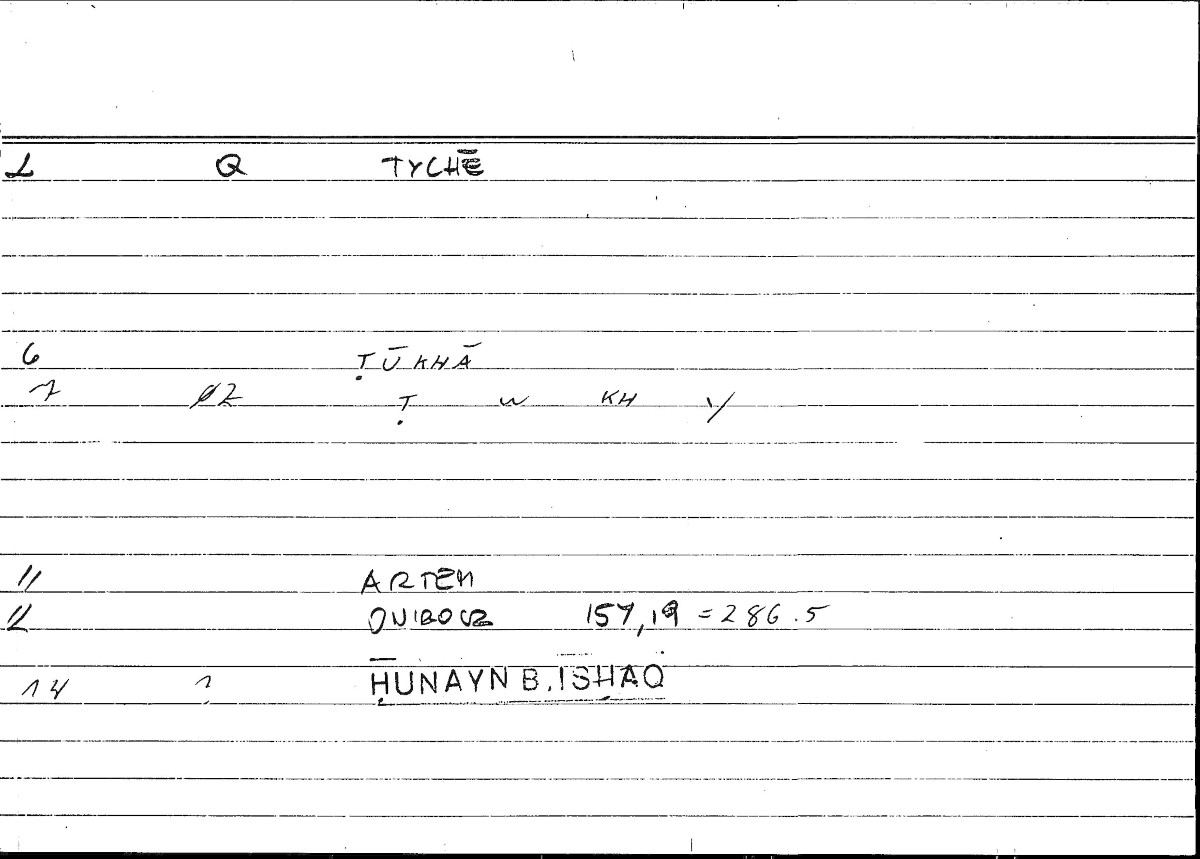 L Q TYCHĒ
6 ṬŪKHĀ
7 02 Ṭ W KH Y
11 ARTEM
12 ONIROCR 157,19 = 286.5
14 ? ḤUNAYN B. ISḤAQ